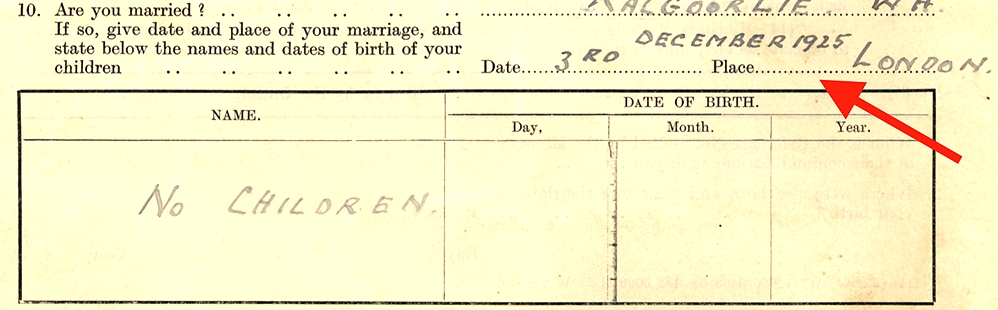 KALGOORLIE. W.A.
10. Are you married ? .. .. .. .. ..
If so, give date and place of your marriage, and DECEMBER 1925
state below the names and dates of birth of your
children .. .. .. .. .. Date 3RD Place LONDON.
NAME. DATE OF BIRTH.
Day, Month. Year.
NO CHILDREN.